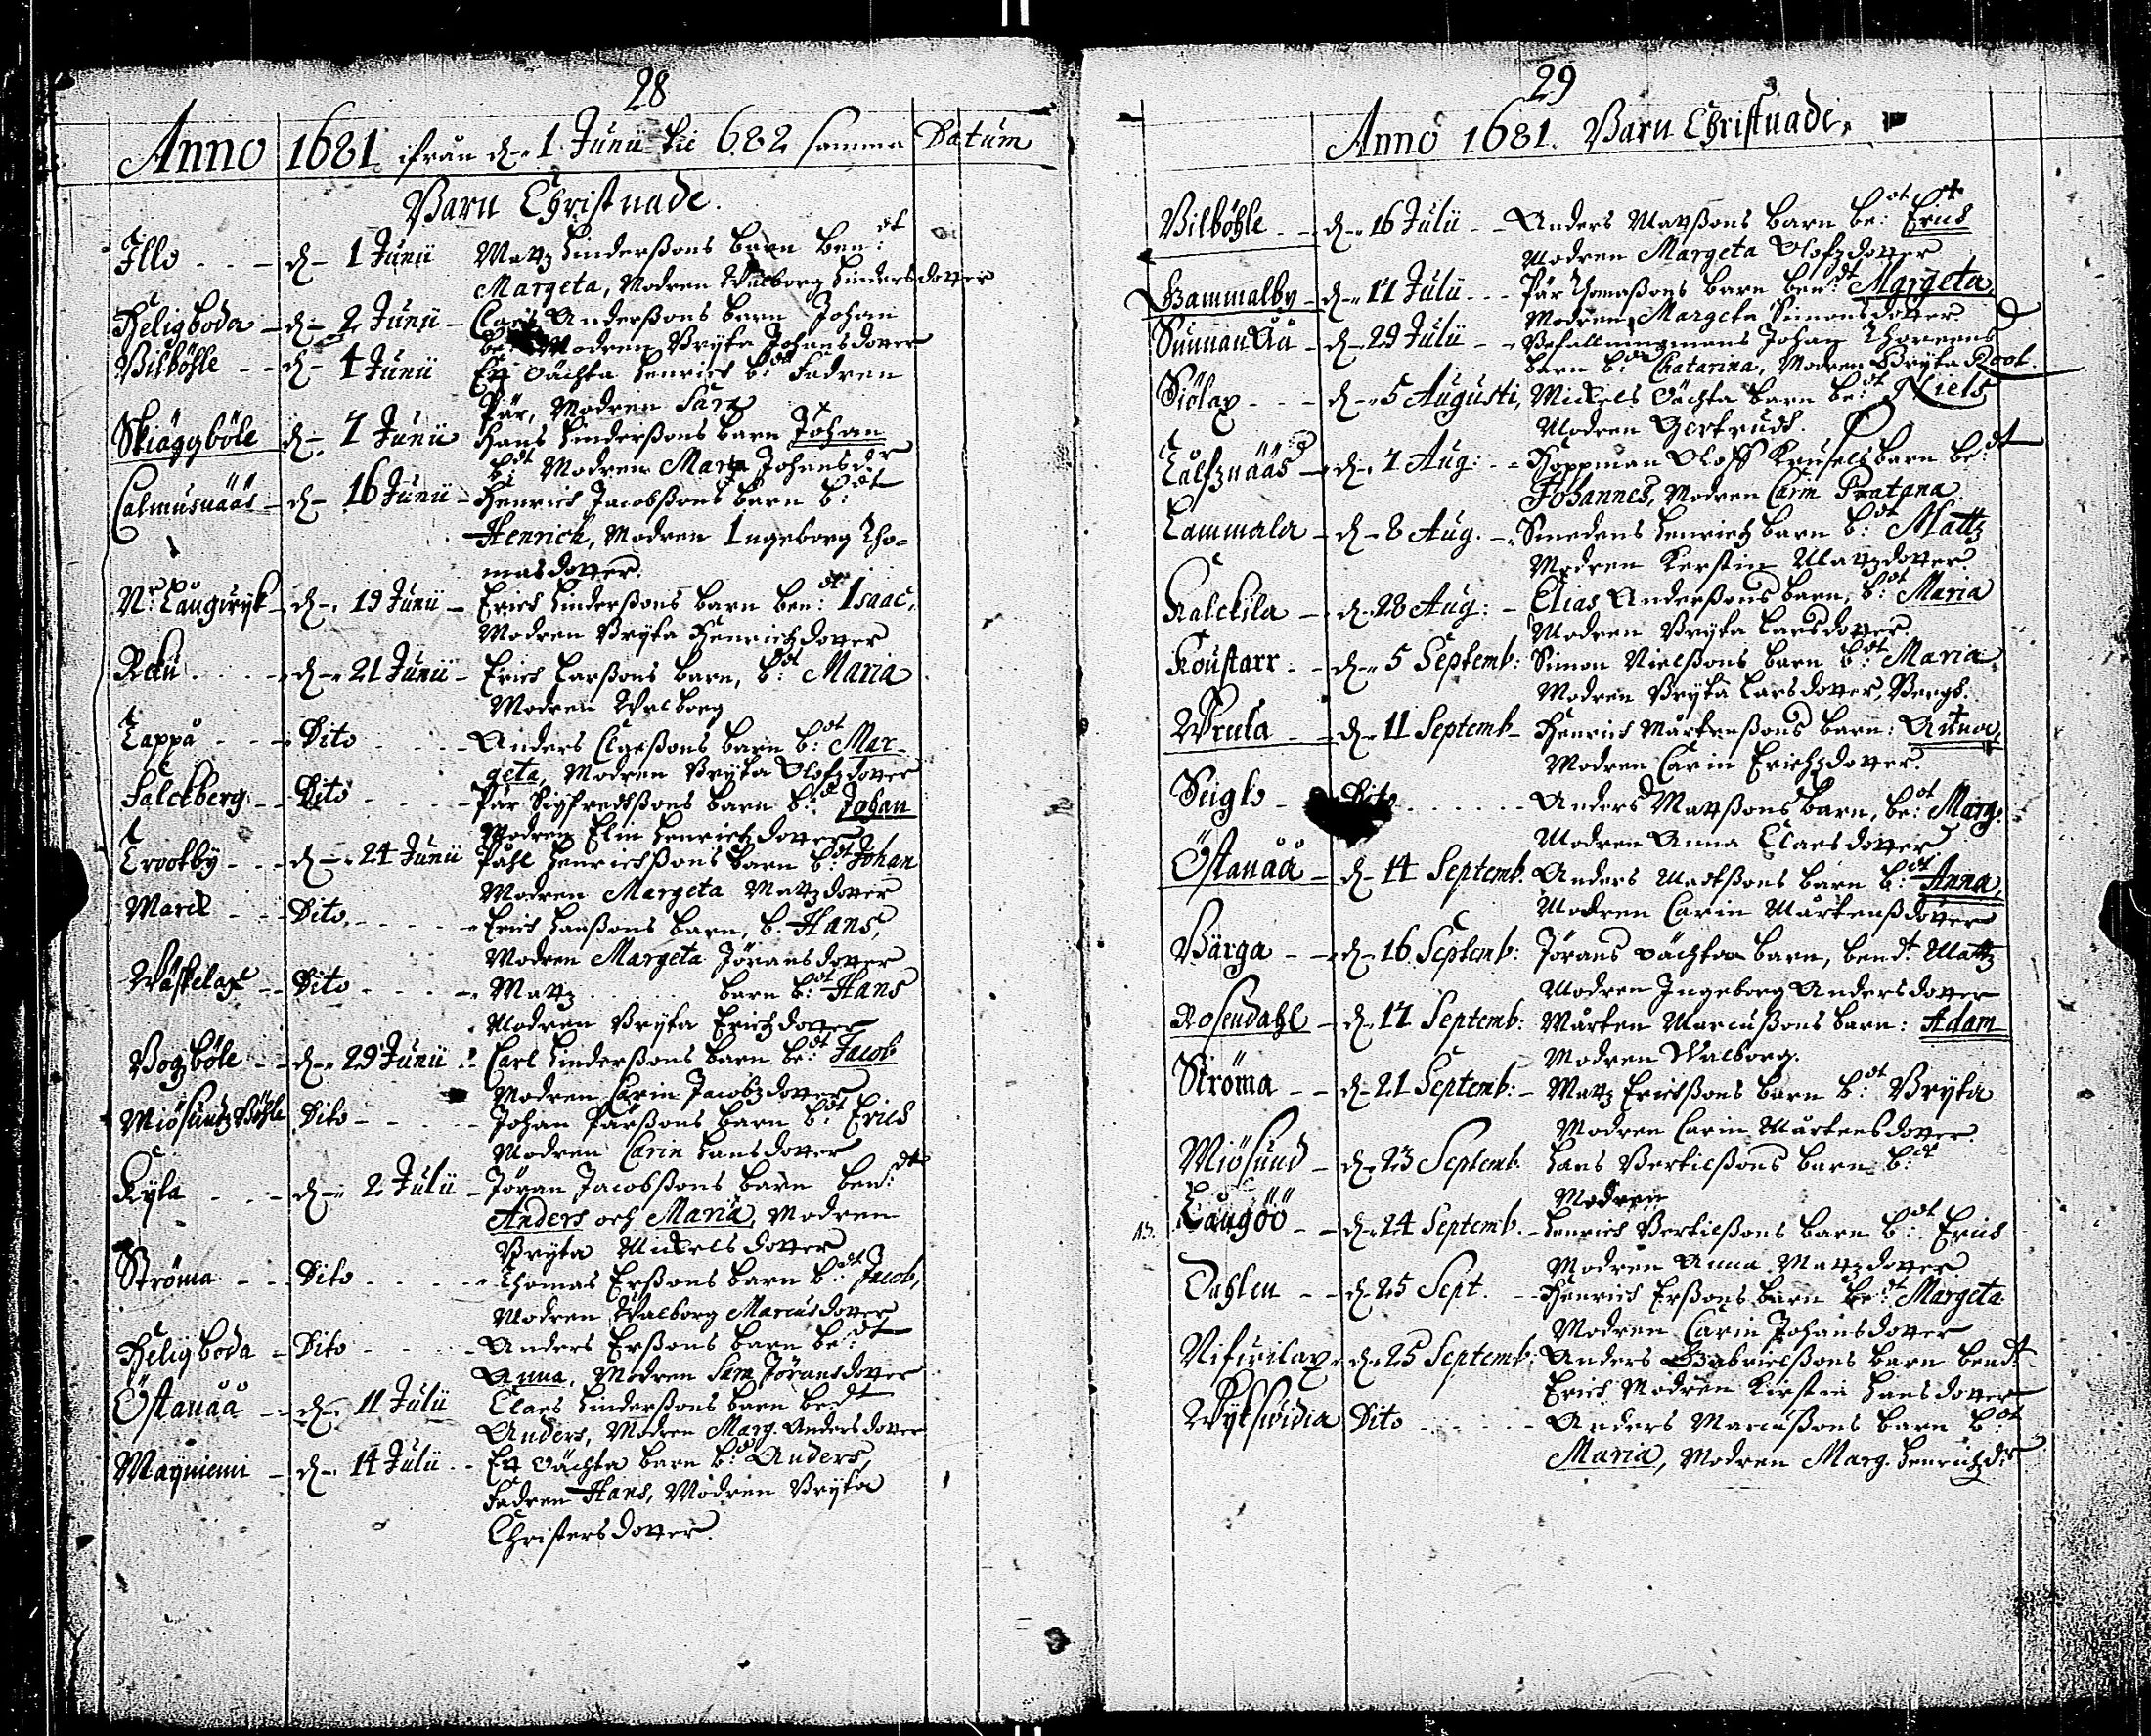 28
Anno 1681 ifrån d. 1 Junii til 682 samma Datum
Barn Christnade.
Illo - - d. 1 Junii Mattz Hinderßons barn ben:dt
Margeta, Modren Walborg Hindersdotter
Heligboda - d. 2 Junii - Claes Anderßons barn Johan
be: Modren Bryta Johansdotter
Bilböhle - - d. 4 Junii Ett oächta Henrich b:dt Fadren
Pär, Modren Sara
Skiäggböle d. 7 Junii Hans Hinderßons barn Johan
b:dt Modren Marta Johansd:r
Calmusnääs - d. 16 Junii - Henrich Jacobßons barn b:dt
Henrich, Modren Ingeborg Tho-
masdotter.
N:r Långwyk - d. 19 Junii - Erich Hinderßons barn ben:dt Isaac,
Modren Bryta Henrichzdotter
Reku - - - d. 21 Junii - Erich Larßons barn, b:dt Maria
Modren Walborg
Lappå - - - Dito - - - Anders Claeßons barn b:dt Mar-
geta, Modren Bryta Olofzdotter
Salckberg - - Dito - - - Pär Sigfredßons barn b:dt Johan
Modren Elin Henrichzdotter
Trootby - - - d. 24 Junii Påhl Henrichßons barn b:dt Johan
Modren Margeta Mattzdotter
Marck - - - Dito. - - - Erich Hanßons barn, b. Hans,
Modren Margeta Jöransdotter
Wästelax - - Dito - - - Mattz barn b:dt Hans
Modren Bryta Erichzdotter
Bogzböle - - d. 29 Junii - Carl Hinderßons barn be:dt Jacob
Modren Carin Jacobzdotter
Miösundz Böhle Dito - - - Johan Pärßons barn b:dt Erich
Modren Carin Hansdotter
Kyla - - - d. 2 Julii - Jöran Jacobßons barn ben:dt
Anders och Maria, Modren
Bryta Mickelsdotter
Ströma - - - Dito - - - Thomas Erßons barn b:dt Jacob,
Modren Walborg Marcusdotter
Heligboda - Dito - - - Anders Erßons barn be:dt
Anna, Modren Sara Jöransdotter
Östanåå - - d. 11 Julii Claes Hinderßons barn bedt
Anders, Modren Marg. Andersdotter
Maqniemi - d. 14 Julii - - Ett oächta barn b:dt Anders,
Fadren Hans, Modren Bryta
Christersdotter.
29
Anno 1681. Barn Christnade.
Bilböhle - - d. 16 Julii - - Anders Mattßons barn be:dt Erich
Modren Margeta Olofzdotter
Gammalby - d. 17 Julii - - - Pär Thomaßons barn ben:dt Margeta
Modren Margeta Simonsdotter
Sunnanåå - d. 29 Julii - - Befallningzmans Johan Thoreens
barn b:dt Chatarina, Modren Bryta Root.
Siölax - - - d. 5 Augusti, Mickels oächta barn be:dt Niels
Modren Gertrudh.
Kålfznääs - d. 7 Aug: - - Koppman Oloff Krusels barn be:dt
Johannes, Modren Carin Pratana
Lammala - d. 8 Aug. - Smedens Henrich barn b:dt Mattz
Modren Kerstin Mattzdotter.
Kalckila - d. 28 Aug: - Elias Anderßons barn, b:dt Maria
Modren Bryta Larsdotter
Koustarr - - d. 5 Septemb: Simon Nielßons barn b:dt Maria,
Modren Bryta Larsdotter, Bergh.
Wreta - - d. 11 Septemb - Henrich Mårtenßons barn:
Modren Carin Erichzdotter.
Stiglo - Dito - - - Anders Mattßons barn, be:dt Marg:
Modren Anna Claesdotter
Östanåå - d. 14 Septemb. Anders barn b:dt Anna,
Modren Carin Mårtenßdotter
Bärga - - d. 16 Septemb: Jörans oächta barn, bendt Mattz
Modren Ingeborg Andersdotter
Rosendahl - d. 17 Septemb: Mårten Marcußons barn: Adam
Modren Walborg.
Ströma - - d. 21 Septemb: - Mattz Erichßons barn b:dt Bryta
Modren Carin Mårtensdotter.
Miösund - d. 23 Septemb. Hans Bertilßons barn b:dt
Modren
Långöö - - d. 24 Septemb. - Henrich Bertilßons barn b:dt Erich
Modren Anna Mattzdotter
Dahlen - - d. 25 Sept. - - Henrich Erßons barn be:dt Margeta
Modren Carin Johansdotter
Nifwilax - d. 25 Septemb: Anders Gabrielßons barn bendt
Erich Modren Kirstin Hansdotter
Wykswidia Dito - - - Anders Marcußons barn b:dt
Maria, Modren Marg. Henrichzd:r